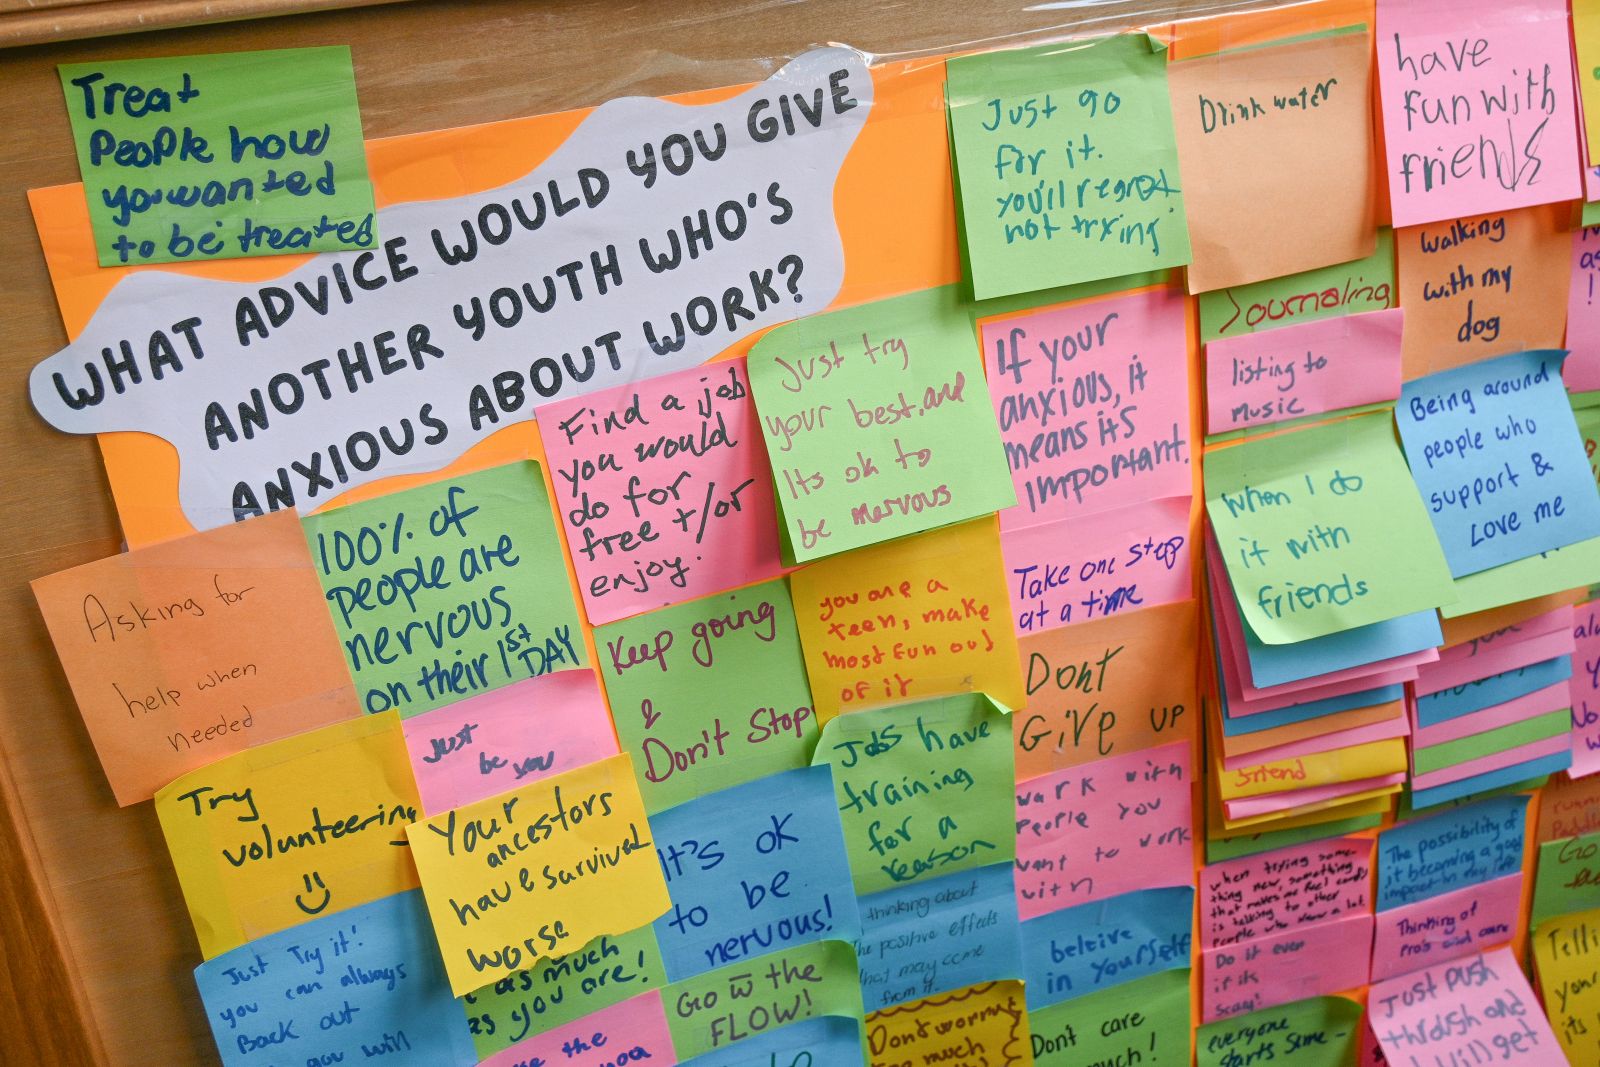 Treat
People how
you wanted
to be treated
WHAT ADVICE WOULD YOU GIVE
ANOTHER YOUTH WHO'S
ANXIOUS ABOUT WORK?
Just go
for it.
you'll regret
not trying
Drink water
have
fun with
friends
Journaling
walking
with my
dog
listing to
music
Find a job
you would
do for
free +/or
enjoy.
Just try
your best, and
Its ok to
be nervous
If your
anxious, it
means it's
important.
Being around
people who
support &
Love me
When I do
it with
friends
Asking for
help when
needed
100% of
people are
nervous
on their 1st DAY
Keep going
&
Don't Stop
you are a
teen, make
most fun out
of it
Take one step
at a time
Dont
Give up
Just
be you
Try
volunteering
Your
ancestors
have survived
worse
It's ok
to be
nervous!
Jobs have
training
for a
reason
work with
People you
want to work
with
friend
thinking about
The positive effects
that may come
from it.
believe
in yourself
when trying some-
thing new, something
that makes me feel comfy
is talking to other
people who know a lot.
The possibility of
it becoming a good
impact in my life
Thinking of
pros and cons
Do it even
if its
scary!
Just Try it!
you can always
Back out
you will
as much
as you are!
Go w the
FLOW!
Don't worry
too much
Don't care
much!
everyone
starts some-
Just push
through and
will get